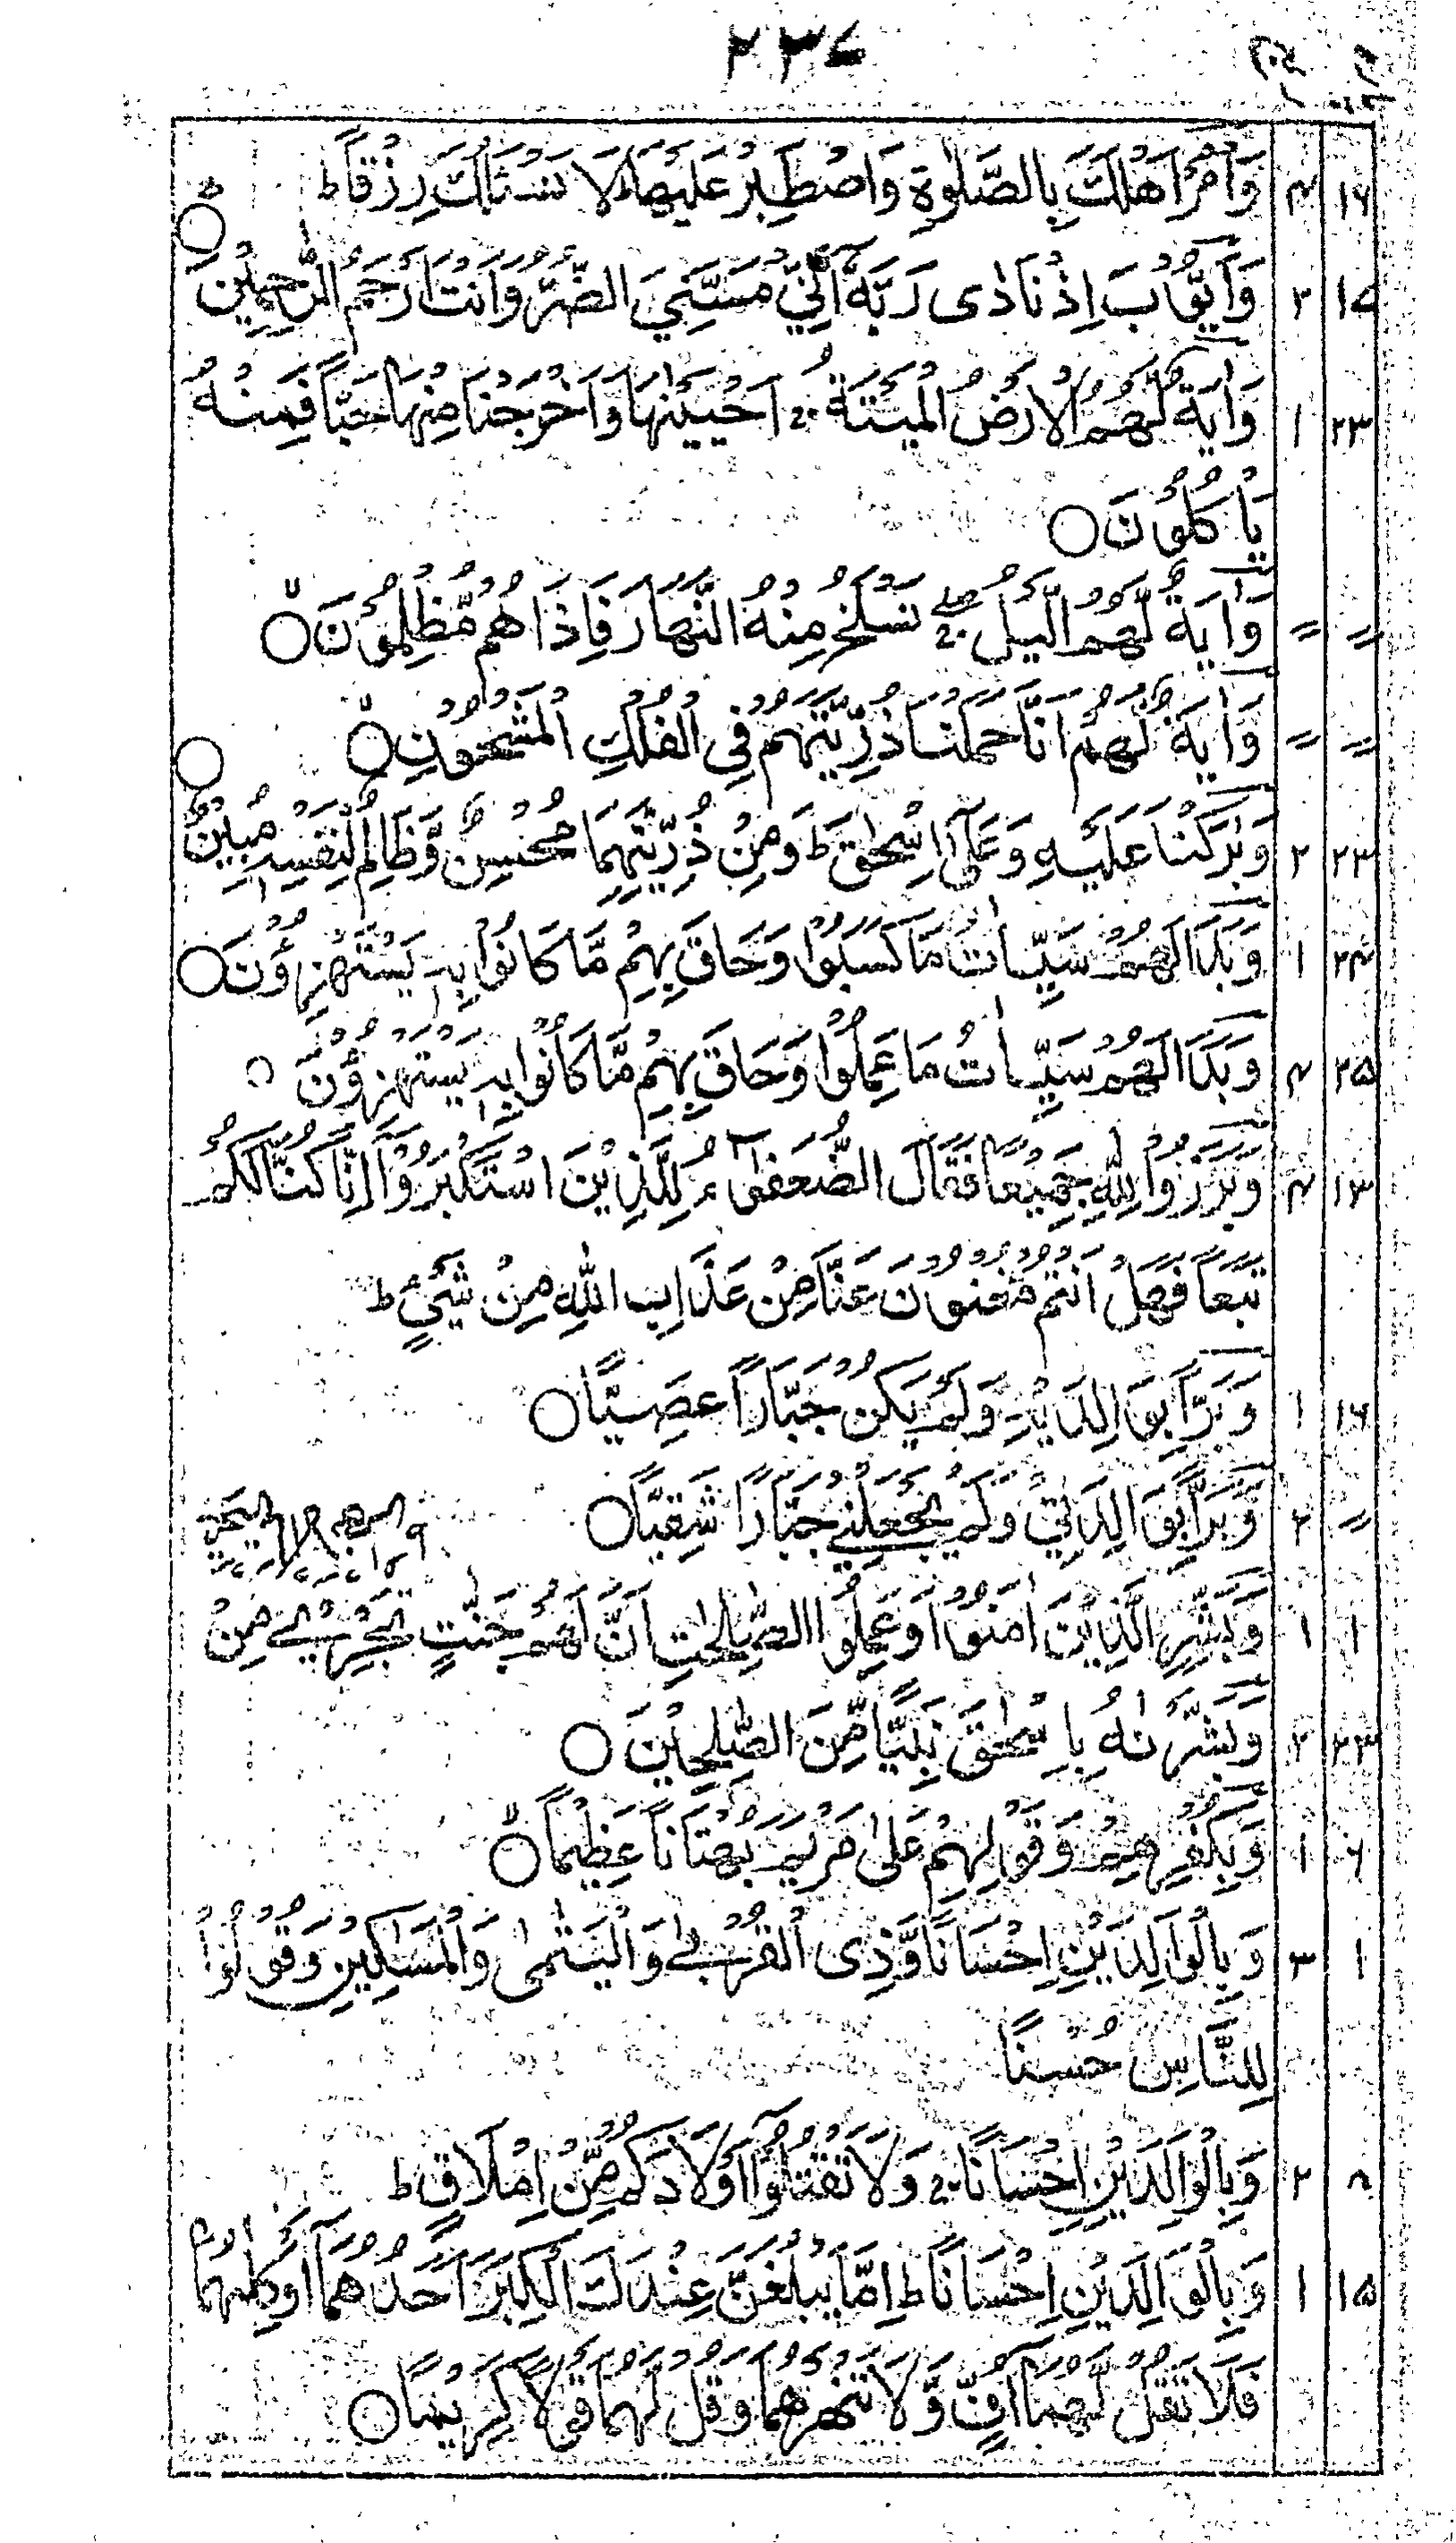 ۲۳۷
۱۶ ۳ وَأْمُرْ اَهْلَكَ بِالصَّلٰوةِ وَاصْطَبِرْ عَلَيْهَا ط لَا نَسْئَلُكَ رِزْقًا ط
۱۷ ۲ وَاَيُّوْبَ اِذْ نَادٰى رَبَّهٗٓ اَنِّيْ مَسَّنِيَ الضُّرُّ وَاَنْتَ اَرْحَمُ الرّٰحِمِيْنَ ○
۲۳ ۱ وَاٰيَةٌ لَّهُمُ الْاَرْضُ الْمَيْتَةُ ۚ اَحْيَيْنٰهَا وَاَخْرَجْنَا مِنْهَا حَبًّا فَمِنْهُ
يَأْكُلُوْنَ ○
〃 〃 وَاٰيَةٌ لَّهُمُ الَّيْلُ ۚ نَسْلَخُ مِنْهُ النَّهَارَ فَاِذَا هُمْ مُّظْلِمُوْنَ ○
〃 〃 وَاٰيَةٌ لَّهُمْ اَنَّا حَمَلْنَا ذُرِّيَّتَهُمْ فِى الْفُلْكِ الْمَشْحُوْنِ ○
۲۳ ۲ وَبٰرَكْنَا عَلَيْهِ وَعَلٰٓى اِسْحٰقَ ط وَمِنْ ذُرِّيَّتِهِمَا مُحْسِنٌ وَّظَالِمٌ لِّنَفْسِهٖ مُبِيْنٌ ○
۲۴ ۱ وَبَدَا لَهُمْ سَيِّاٰتُ مَا كَسَبُوْا وَحَاقَ بِهِمْ مَّا كَانُوْا بِهٖ يَسْتَهْزِءُوْنَ ○
۲۵ ۴ وَبَدَا لَهُمْ سَيِّاٰتُ مَا عَمِلُوْا وَحَاقَ بِهِمْ مَّا كَانُوْا بِهٖ يَسْتَهْزِءُوْنَ ○
۱۳ ۴ وَبَرَزُوْا لِلّٰهِ جَمِيْعًا فَقَالَ الضُّعَفٰٓؤُا لِلَّذِيْنَ اسْتَكْبَرُوْٓا اِنَّا كُنَّا لَكُمْ
تَبَعًا فَهَلْ اَنْتُمْ مُّغْنُوْنَ عَنَّا مِنْ عَذَابِ اللّٰهِ مِنْ شَىْءٍ ط
۱۶ ۱ وَبَرًّا بِوَالِدَيْهِ وَلَمْ يَكُنْ جَبَّارًا عَصِيًّا ○
〃 ۲ وَبَرًّا بِوَالِدَتِيْ وَلَمْ يَجْعَلْنِيْ جَبَّارًا شَقِيًّا ○
۱ ۱ وَبَشِّرِ الَّذِيْنَ اٰمَنُوْا وَعَمِلُوا الصّٰلِحٰتِ اَنَّ لَهُمْ جَنّٰتٍ تَجْرِيْ مِنْ
۲۳ ۳ وَبَشَّرْنٰهُ بِاِسْحٰقَ نَبِيًّا مِّنَ الصّٰلِحِيْنَ ○
۶ ۱ وَبِكُفْرِهِمْ وَقَوْلِهِمْ عَلٰى مَرْيَمَ بُهْتَانًا عَظِيْمًا ○
۱ ۳ وَبِالْوَالِدَيْنِ اِحْسَانًا وَّذِى الْقُرْبٰى وَالْيَتٰمٰى وَالْمَسَاكِيْنِ وَقُوْلُوْا
لِلنَّاسِ حُسْنًا
۸ ۲ وَبِالْوَالِدَيْنِ اِحْسَانًا ۚ وَلَا تَقْتُلُوْٓا اَوْلَادَكُمْ مِّنْ اِمْلَاقٍ ط
۱۵ ۱ وَبِالْوَالِدَيْنِ اِحْسَانًا ط اِمَّا يَبْلُغَنَّ عِنْدَكَ الْكِبَرَ اَحَدُهُمَآ اَوْ كِلٰهُمَا
فَلَا تَقُلْ لَّهُمَآ اُفٍّ وَّلَا تَنْهَرْهُمَا وَقُلْ لَّهُمَا قَوْلًا كَرِيْمًا ○